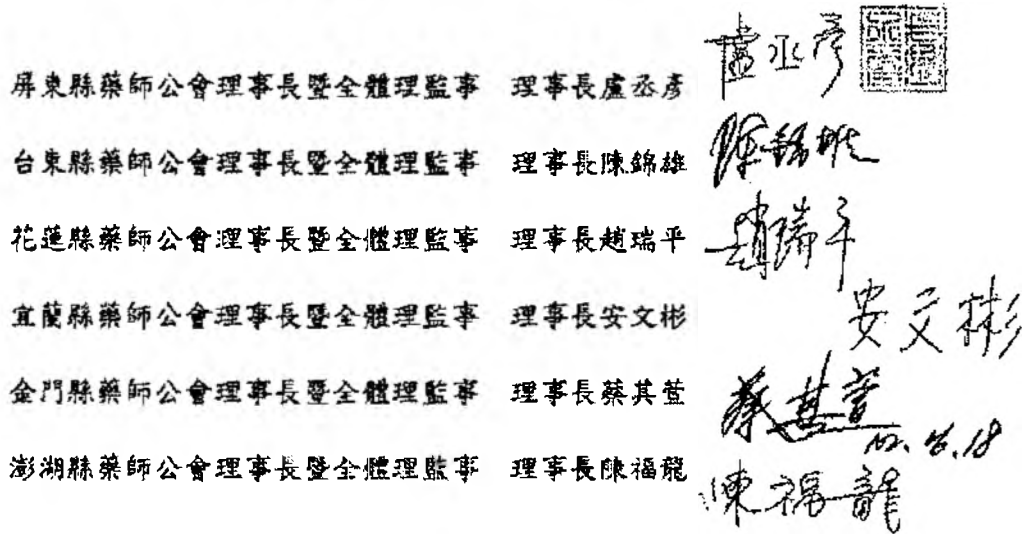 屏東縣藥師公會理事長暨全體理監事 理事長盧丞彥 盧丞彥
台東縣藥師公會理事長暨全體理監事 理事長陳錦雄 陳錦雄
花蓮縣藥師公會理事長暨全體理監事 理事長趙瑞平 趙瑞平
宜蘭縣藥師公會理事長暨全體理監事 理事長安文彬 安文彬
金門縣藥師公會理事長暨全體理監事 理事長蔡其萱 蔡其萱
澎湖縣藥師公會理事長暨全體理監事 理事長陳福龍 陳福龍